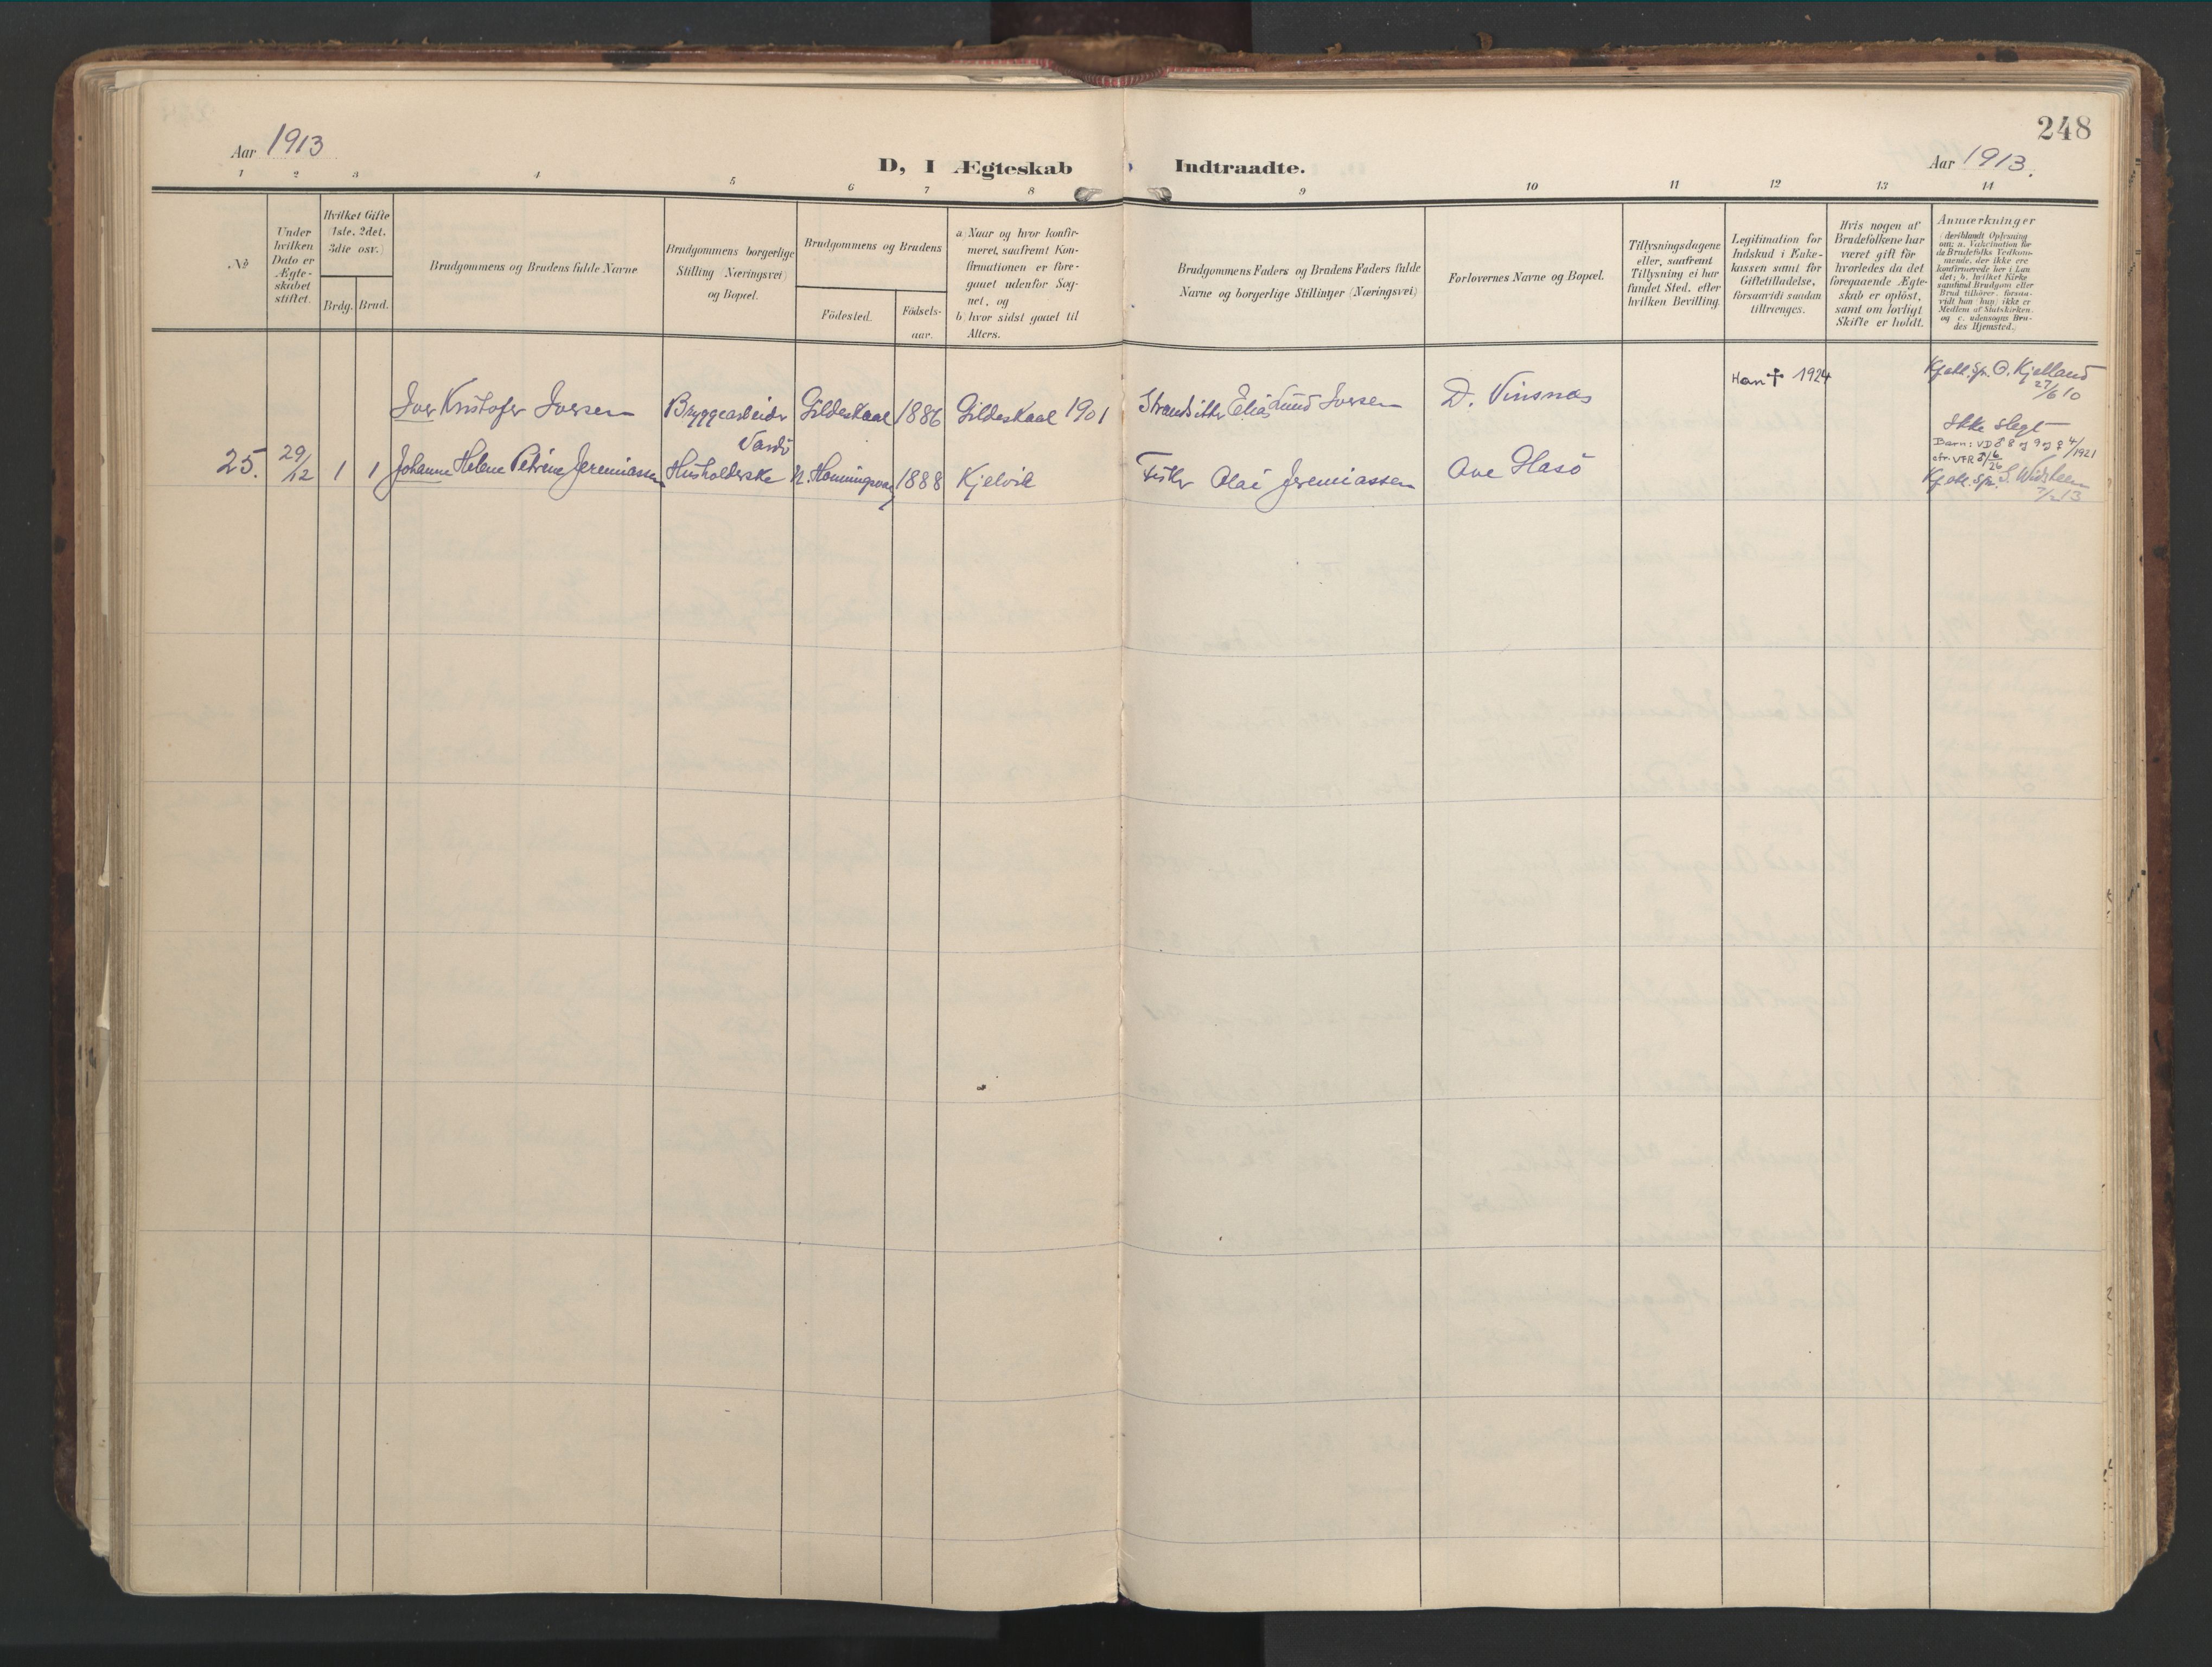 248
Aar 1913
D, I Ægteskab Indtraadte.
Aar 1913.
1 2 3 4 5 6 7 8 9 10 11 12 13 14
No
Under
hvilken
Dato er
Ægte-
skabet
stiftet.
Hvilket Gifte
(1ste, 2det,
3die osv.)
Brdg. Brud.
Brudgommens og Brudens fulde Navne
Brudgommens borgerlige
Stilling (Næringsvei)
og Bopæl.
Brudgommens og Brudens
Födested.
Födsels-
aar.
a) Naar og hvor konfir-
meret, saafremt Kon-
firmationen er fore-
gaaet udenfor Sog-
net, og
b) hvor sidst gaaet til
Alters.
Brudgommens Faders og Brudens Faders fulde
Navne og borgerlige Stillinger (Næringsvei)
Forlovernes Navne og Bopæl.
Tillysningsdagene
eller, saafremt
Tillysning ei har
fundet Sted, efter
hvilken Bevilling.
Legitimation for
Indskud i Enke-
kassen samt for
Giftetilladelse,
forsaavidt saadan
tiltrænges.
Hvis nogen af
Brudefolkene har
været gift før
hvorledes da det
foregaaende Ægte-
skab er opløst,
samt om lovligt
Skifte er holdt.
Anmærkninger
(deriblandt Oplysning
om: a. Vakcination for
de Brudefolks Vedkom-
mende, der ikke ere
konfirmerede her i Lan
det; b. hvilket Kirke
samfund Brudgom eller
Brud tilhører, forsaa-
vidt han (hun) ikke er
Medlem af Statskirken.
og c. udensogns Bru-
des Hjemsted.
Iver Kristofer Iversen Bryggearbeider Gildeskaal 1886 Gildeskaal 1901 Strandsitter Elias Lund Iversen D. Vinsnes Han ✝ 1924 Kjelland
27/6 10
Vardö
Ikke slegt
Barn: VD ♂ 8 og 9 og ♀ 4/1921
25. 29/12 1 1 Johanne Helene Petrine Jeremiassen Husholderske N. Honningsvaag 1888 Kjelvik Fisker Olai Jeremiassen Ove Hasö